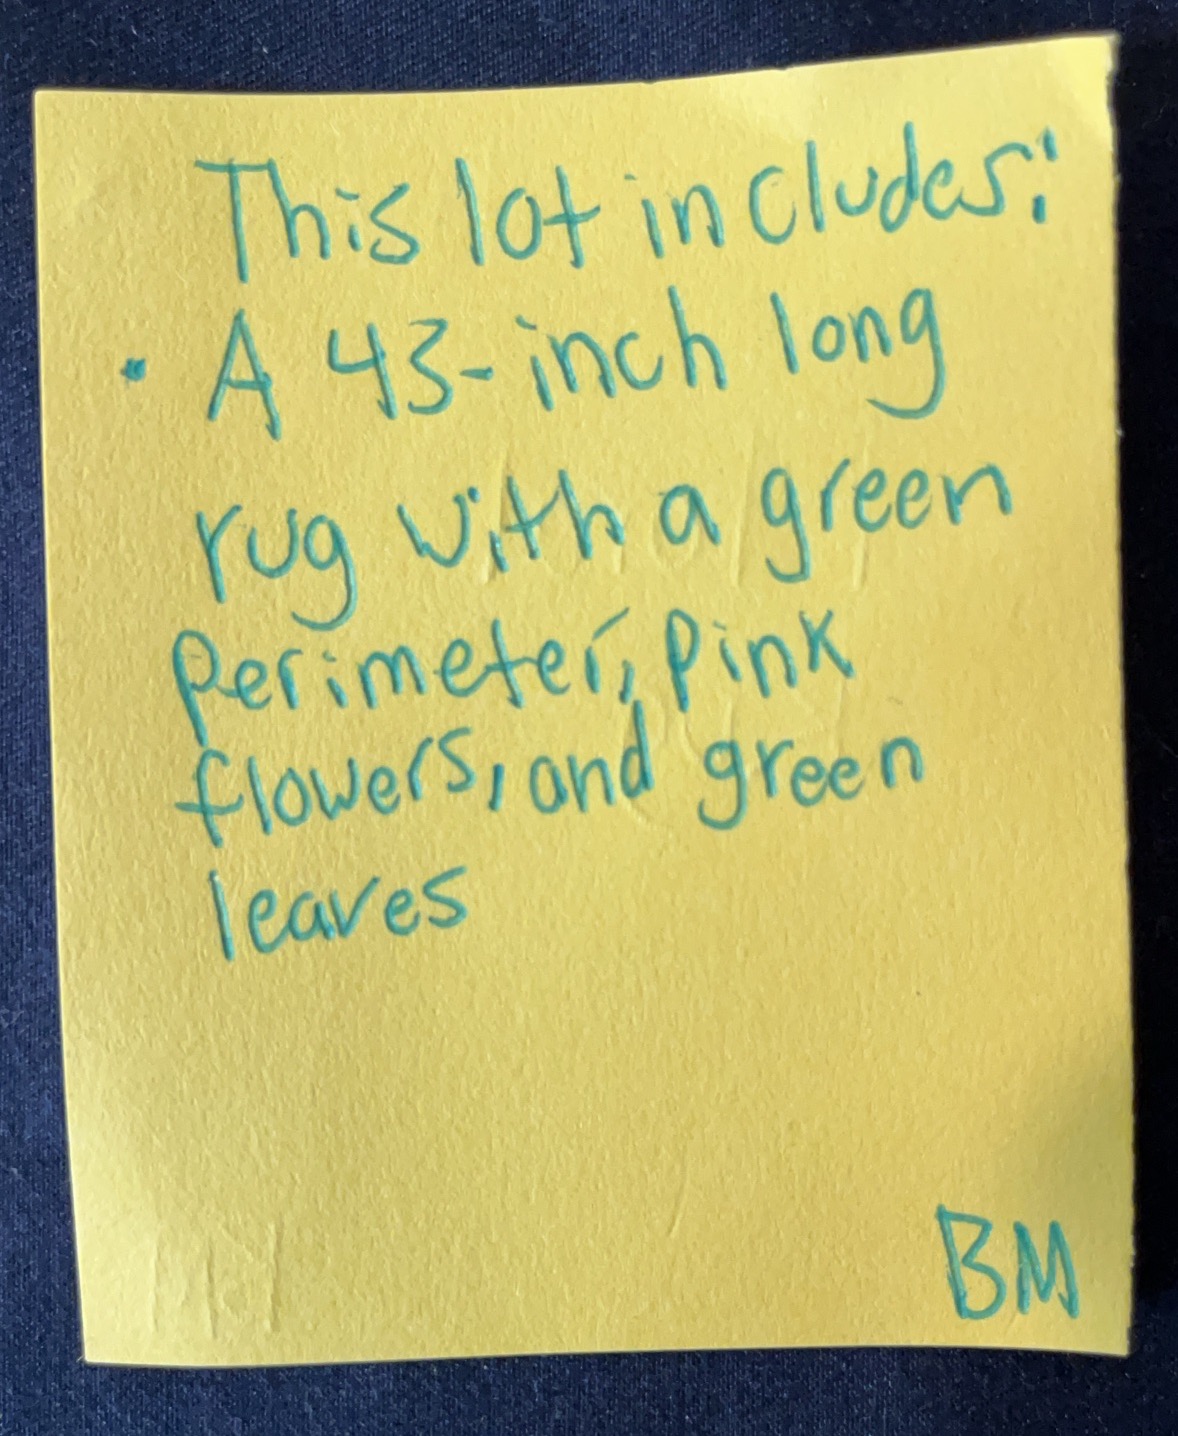 This lot includes:
• A 43-inch long
rug with a green
perimeter, pink
flowers, and green
leaves
BM